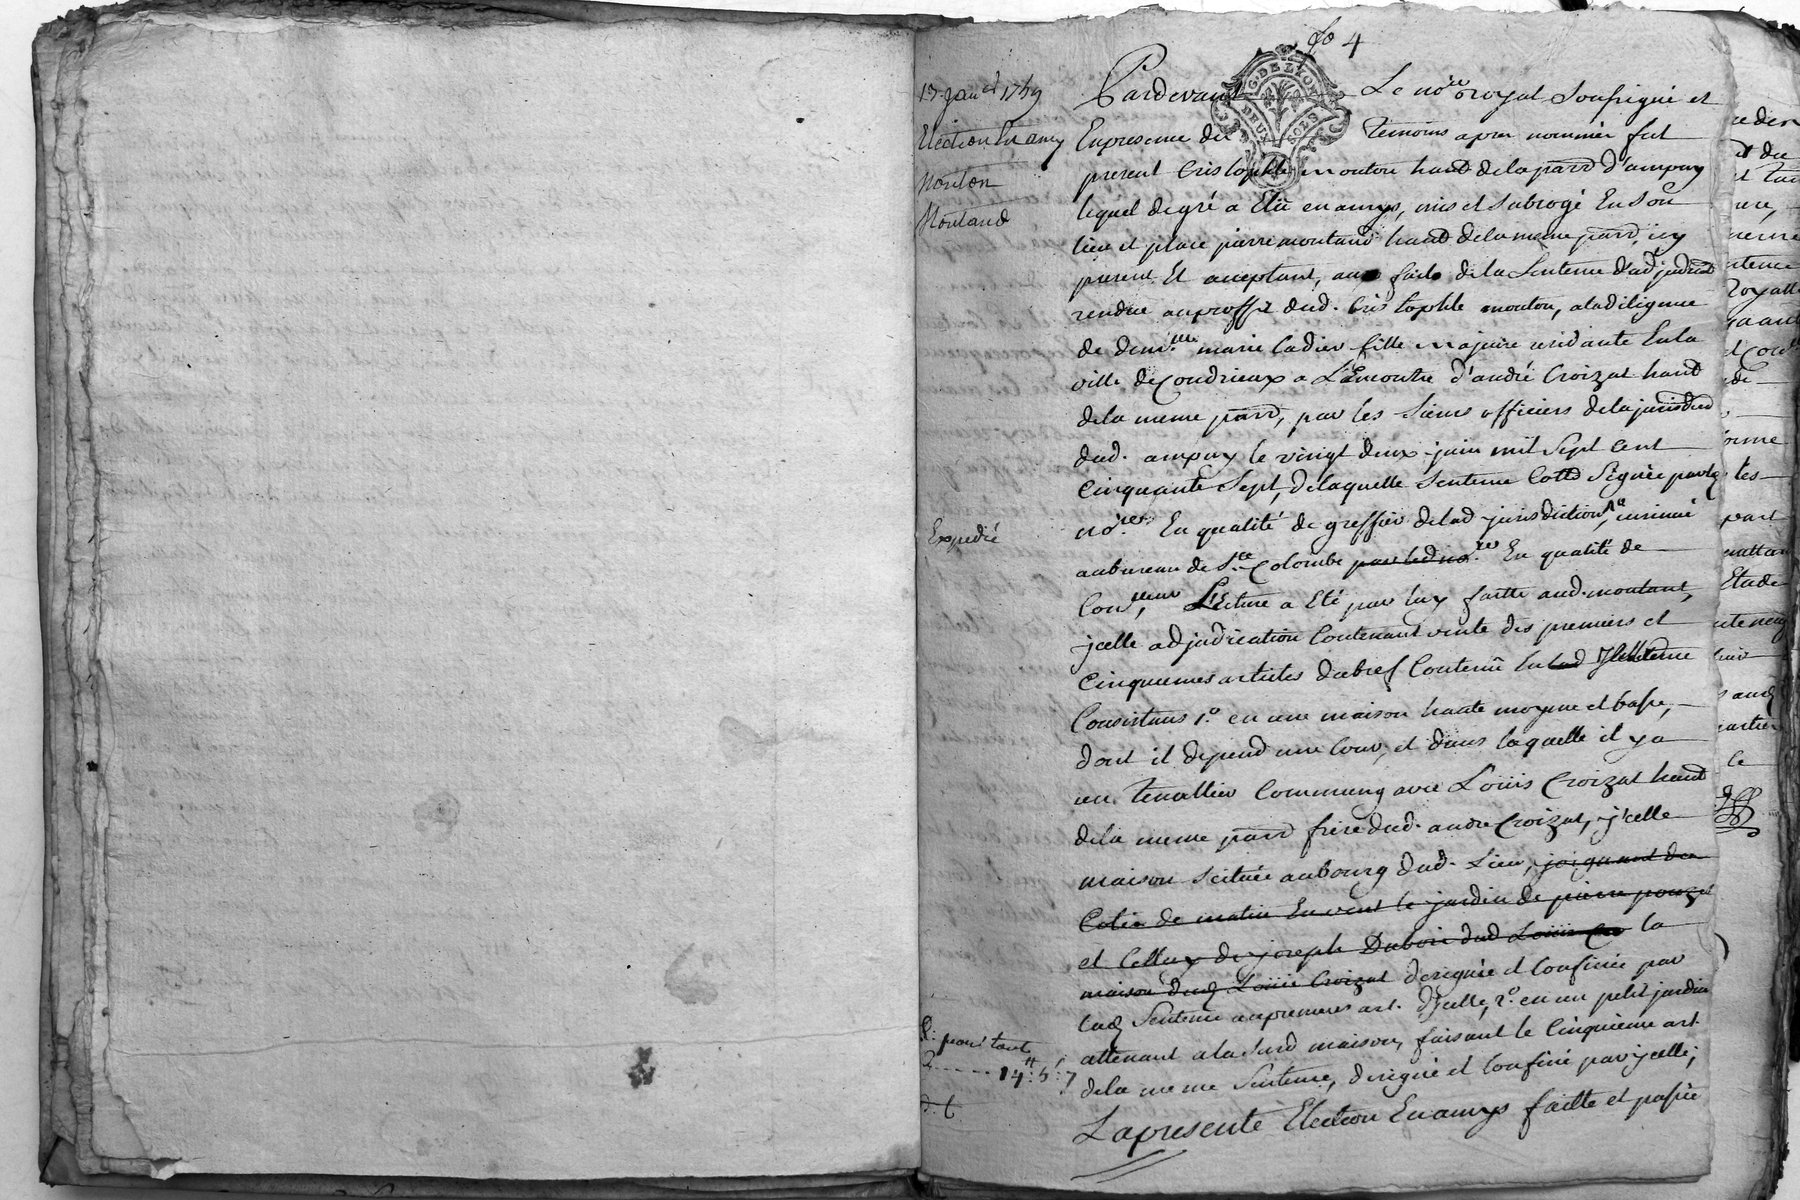 fo 4
13 Janer 1759
Election En amy
Mouton
Montand
Expedié
14 : 5 : 7
G. DE LYON
DEUX SOLS
Pardevant Le nore royal Soussigné et
En presence des Temoins apres nommés fut
present Cristophle mouton habt de la parr d'ampuy
lequel de gré a Elû en amys, mis et subrogé En son
lieu et place pierre montand habt de la meme parr, icy
present Et acceptant, aux fait de la Sentence d'adjudicaon
rendue au proffit dud. Cristophle mouton, a la diligence
de demlle marie Cadier fille majeure residante En la
ville de Condrieux a L'Encontre d'andré Croizat habt
de la meme parr, par les Sieurs officiers de la jurisdicon
dud. ampuy le vingt deux juin mil Sept Cent
Cinquante Sept, de laquelle Sentence Signée par led
nore. En qualité de greffier de lad jurisdiction, insinué
au bureau de Ste Colombe par led nore En qualité de
Lecture a Eté par luy faitte aud. montand,
jcelle adjudication Contenant vente des premiers et
Cinquiemes articles du bref Contenû En lad Sentence
Consistans 1o. en une maison haute moyene et basse,
dont il depend une Cour, et dans laquelle il y a
un Tenallier Communq avec Loüis Croizat habt
de la meme parr frere dud. andre Croizat, jcelle
maison Scituée au bourg dud. Lieu, joignant du
Coté de matin En vent le jardin de pierre pouzet
et Celluy de joseph Dubois dud Loüis Cro la
maison dud Loüis Croizat designée et Confinée par
lad Sentence au premier art. d'jcelle, 2o. en un petit jardin
attenant a la susd maison, faisant le Cinquieme art.
de la meme Sentence, designé et Confiné par jcelle;
La presente Election En amys faitte et passée